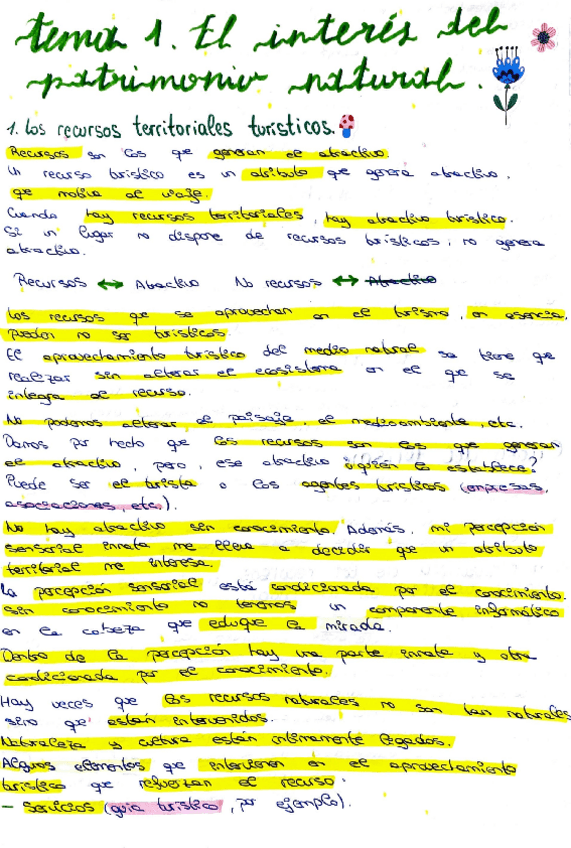 tema 1. El interés del
patrimonio natural.
1. Los recursos territoriales turísticos.
Recursos son los que generan el atractivo.
Un recurso turístico es un atributo que genera atractivo,
que motiva al viaje.
Cuando hay recursos territoriales, hay atractivo turístico.
Si un lugar no dispone de recursos turísticos, no genera
atractivo.
Recursos ↔ Atractivo No recursos ↔ Atractivo
Los recursos que se aprovechan en el turismo, en esencia,
pueden no ser turísticos.
El aprovechamiento turístico del medio natural se tiene que
realizar sin alterar el ecosistema en el que se
integra el recurso.
No podemos alterar el paisaje, el medioambiente, etc.
Damos por hecho que los recursos son los que generan
el atractivo, pero, ese atractivo ¿quién lo establece?
Puede ser el turista o los agentes turísticos (empresas,
asociaciones, etc.).
No hay atractivo sin conocimiento. Además, mi percepción
sensorial innata me lleva a decidir que un atributo
territorial me interesa.
La percepción sensorial está condicionada por el conocimiento.
Sin conocimiento no tenemos un componente informático
en la cabeza que eduque la mirada.
Dentro de la percepción hay una parte innata y otra
condicionada por el conocimiento.
Hay veces que los recursos naturales no son tan naturales
sino que están intervenidos.
Naturaleza y cultura están íntimamente ligados.
Algunos elementos que intervienen en el aprovechamiento
turístico que refuerzan el recurso:
- Servicios (guía turístico, por ejemplo).